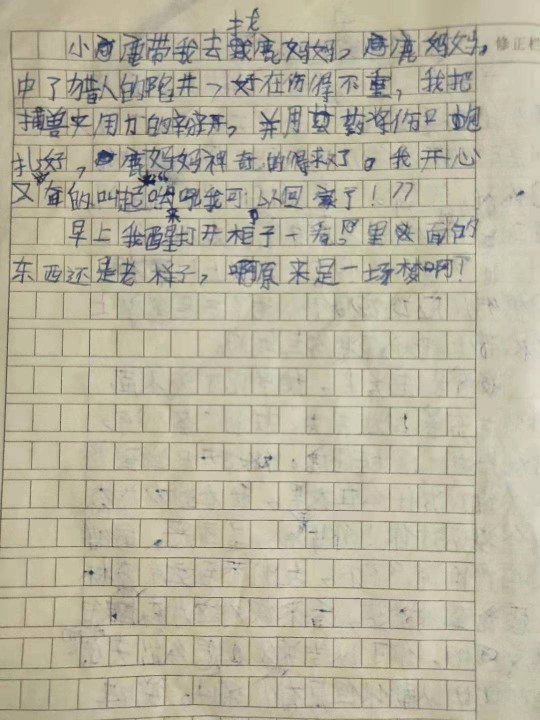 小鹿带我去找鹿妈妈,鹿妈妈
中了猎人的陷井,好在伤得不重,我把
捕兽夹用力的掰开,并用草药将伤口包
扎好,鹿妈妈神奇的得救了。我开心
又的叫起“哟呢我可以回家了!”
早上我醒来打开柜子一看,里面的
东西还是老样子,啊原来是一场梦啊!
修正栏